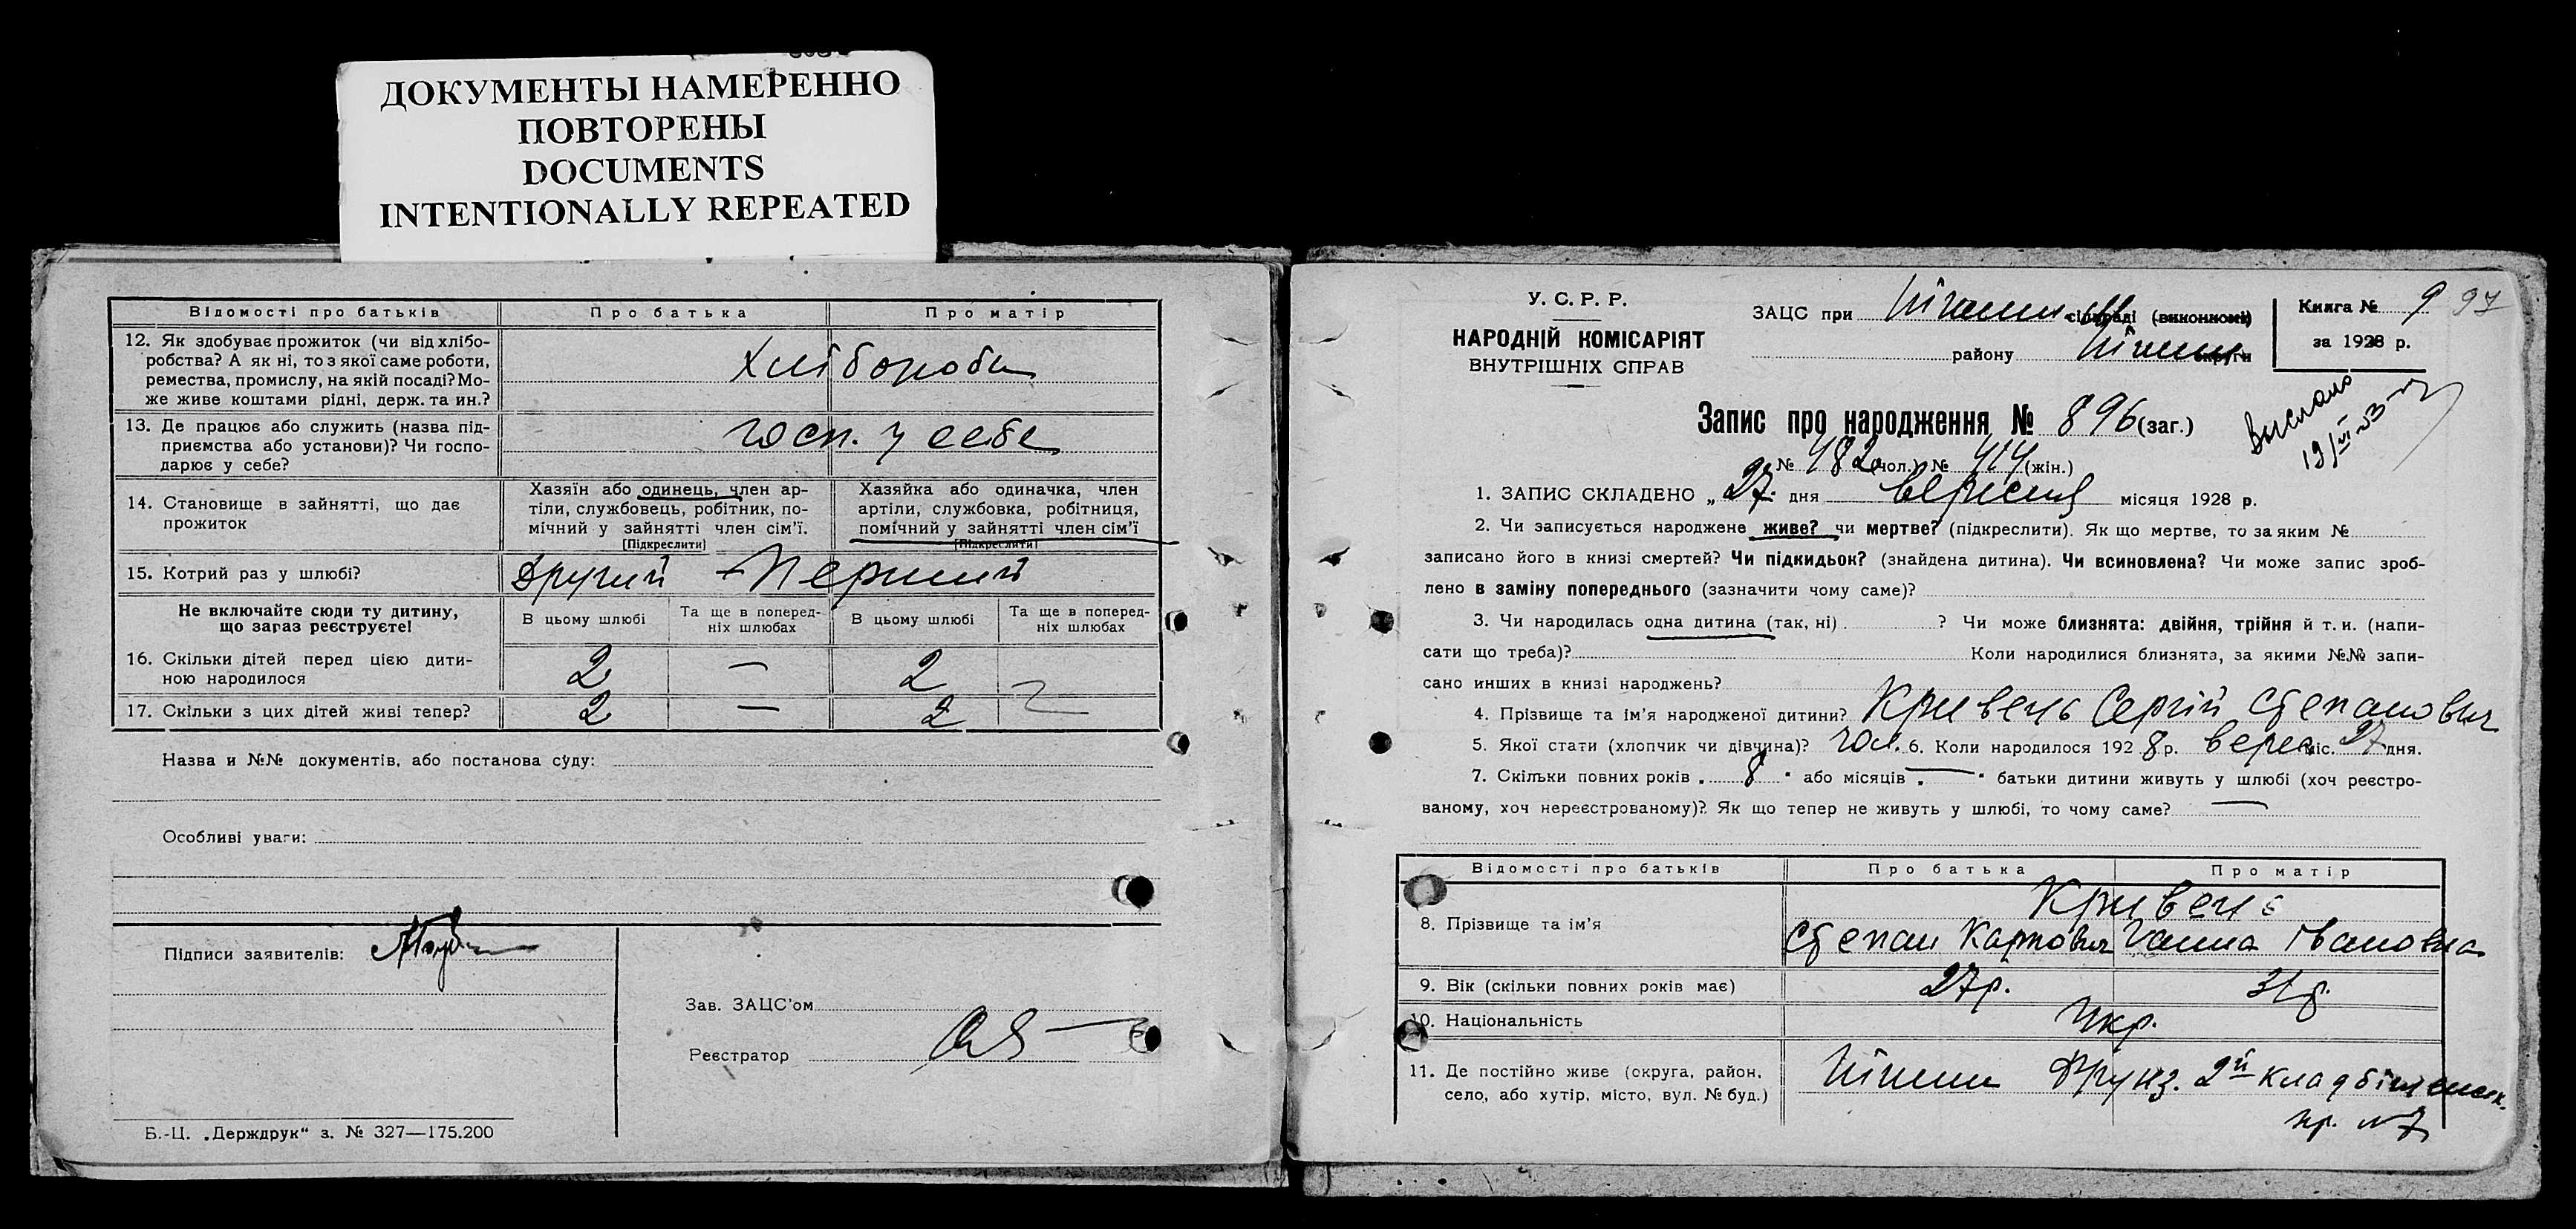 ДОКУМЕНТЫ НАМЕРЕННО
ПОВТОРЕНЫ
DOCUMENTS
INTENTIONALLY REPEATED
Відомості про батьків Про батька Про матір
12. Як здобуває прожиток (чи від хлібо-
робства? А як ні, то з якої саме роботи,
ремества, промислу, на якій посаді? Мо-
же живе коштами рідні, держ. та ин.?
хлібороби
13. Де працює або служить (назва під-
приємства або установи)? Чи госпо-
дарює у себе?
госп. у себе
14. Становище в зайнятті, що дає
прожиток
Хазяїн або одинець, член ар-
тіли, службовець, робітник, по-
мічний у зайнятті член сім'ї.
[Підкреслити]
Хазяйка або одиначка, член
артіли, службовка, робітниця,
помічний у зайнятті член сім'ї
[Підкреслити]
15. Котрий раз у шлюбі? Другий – Перший
Не включайте сюди ту дитину,
що зараз реєструєте!
В цьому шлюбі Та ще в поперед-
ніх шлюбах В цьому шлюбі Та ще в поперед-
ніх шлюбах
16. Скільки дітей перед цією дити-
ною народилося 2 — 2
17. Скільки з цих дітей живі тепер? 2 — 2
Назва и №№ документів, або постанова суду:
Особливі уваги:
Підписи заявителів:
Зав. ЗАЦС'ом
Реєстратор
Б.-Ц. „Держдрук“ з. № 327—175.200
У. С. Р. Р.
НАРОДНІЙ КОМІСАРІЯТ
ВНУТРІШНІХ СПРАВ
ЗАЦС при сільраді (виконкомі)
району округи
Книга № 9 97
за 1928 р.
Запис про народження № 896 (заг.)
№ 482 (чол.) № 414 (жін.)
Выслано
19/VI 53
1. ЗАПИС СКЛАДЕНО „27. дня вересня місяця 1928 р.
2. Чи записується народжене живе? чи мертве? (підкреслити). Як що мертве, то за яким №
записано його в книзі смертей? Чи підкидьок? (знайдена дитина). Чи всиновлена? Чи може запис зроб-
лено в заміну попереднього (зазначити чому саме)?
3. Чи народилась одна дитина (так, ні) ? Чи може близнята: двійня, трійня й т. и. (напи-
сати що треба)? Коли народилися близнята, за якими №№ запи-
сано инших в книзі народжень?
4. Прізвище та ім'я народженої дитини? Кривень Сергій Степанович
5. Якої стати (хлопчик чи дівчина)? чол. 6. Коли народилося 1928 р. верес міс. 27 дня.
7. Скільки повних років „ 8 “ або місяців „ — “ батьки дитини живуть у шлюбі (хоч реєстро-
ваному, хоч нереєстрованому)? Як що тепер не живуть у шлюбі, то чому саме? —
Відомості про батьків Про батька Про матір
8. Прізвище та ім'я
Кривень
Степан Карпович Ганна Івановна
9. Вік (скільки повних років має) 27 р. 31 р.
10. Національність Укр.
11. Де постійно живе (округа, район,
село, або хутір, місто, вул. № буд.)
Ніжин Фрунз. 2й кладбіщенск.
пр. №7